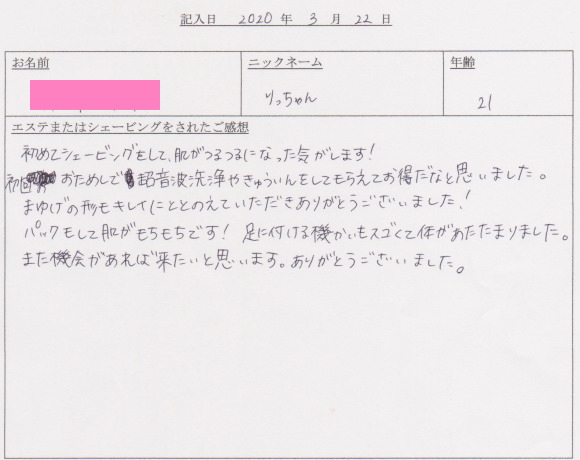 記入日 2020 年 3 月 22 日
お名前 ニックネーム 年齢
りっちゃん 21
エステまたはシェービングをされたご感想
初めてシェービングをして、肌がつるつるになった気がします!
初回 おためしで超音波洗浄やきゅういんをしてもらえてお得だなと思いました。
まゆげの形もキレイにととのえていただきありがとうございました!
パックもして肌がもちもちです! 足に付ける機かいもスゴくて体があたたまりました。
また機会があれば来たいと思います。ありがとうございました。